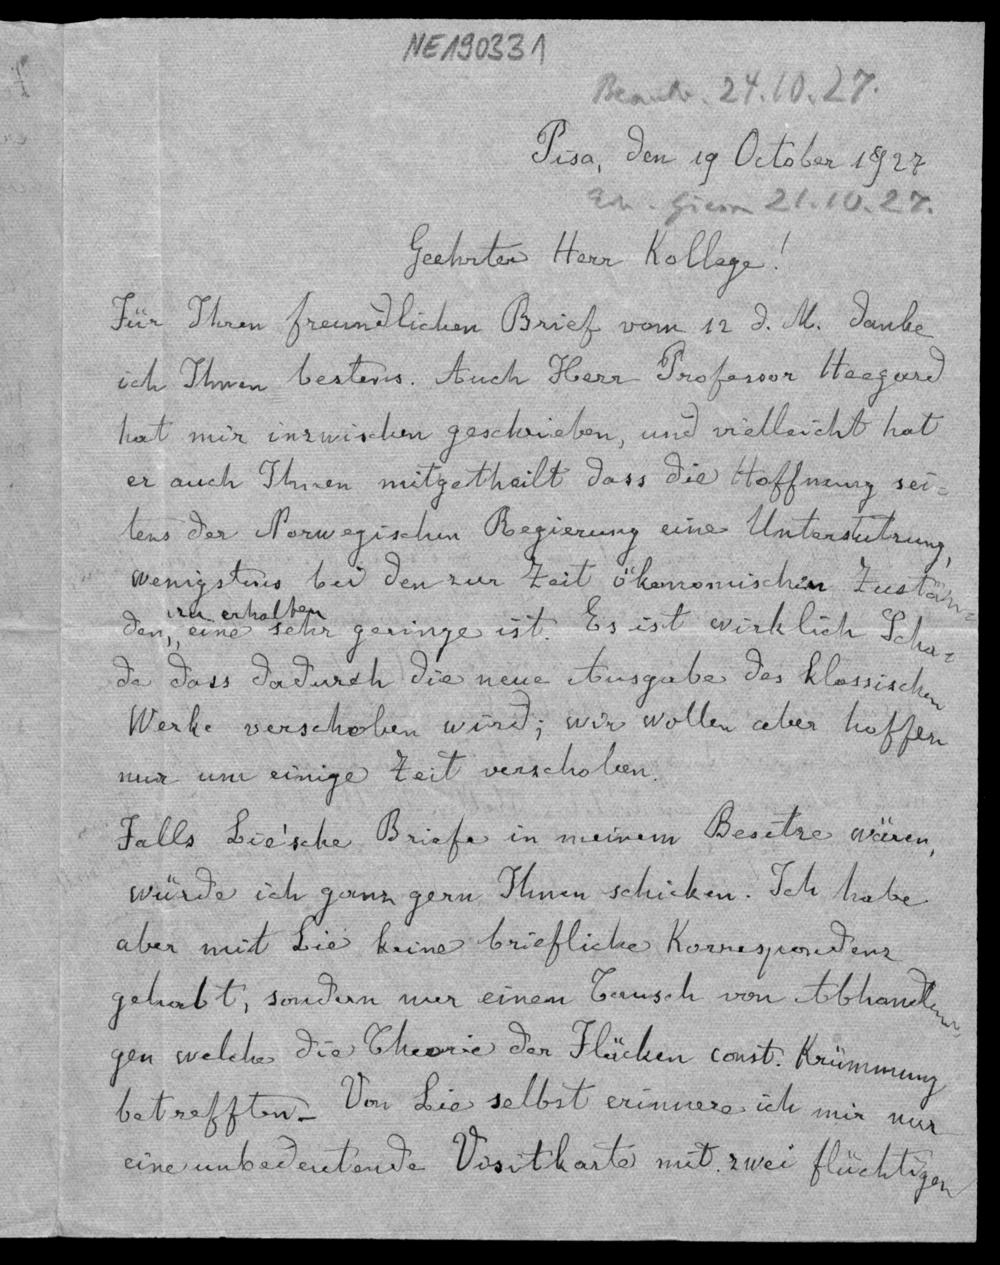 NE190331
Beantw. 24.10.27.
Pisa, den 19 October 1927
Erh. Giessen 21.10.27.
Geehrter Herr Kollege!
Für Ihren freundlichen Brief vom 12 d. M. danke
ich Ihnen bestens. Auch Herr Professor Heegard
hat mir inzwischen geschrieben, und vielleicht hat
er auch Ihnen mitgetheilt dass die Hoffnung sei=
tens der Norwegischen Regierung eine Unterstutzung,
wenigstens bei den zur Zeit ökonomischen Zustän=
zu erhalten
den, eine sehr geringe ist. Es ist wirklich Scha=
de dass dadurch die neue Ausgabe des klassischen
Werke verschoben wird; wir wollen aber hoffen
nur um einige Zeit verschoben.
Falls Lie'sche Briefe in meinem Besitze wären,
würde ich ganz gern Ihnen schicken. Ich habe
aber mit Lie keine briefliche Korrespondenz
gehabt, sondern nur einen Tausch von Abhandlun=
gen welche die Theorie der Flächen const. Krümmung
betrefften_ Von Lie selbst erinnere ich mir nur
eine unbedeutende Visitkarte mit zwei flüchtigen